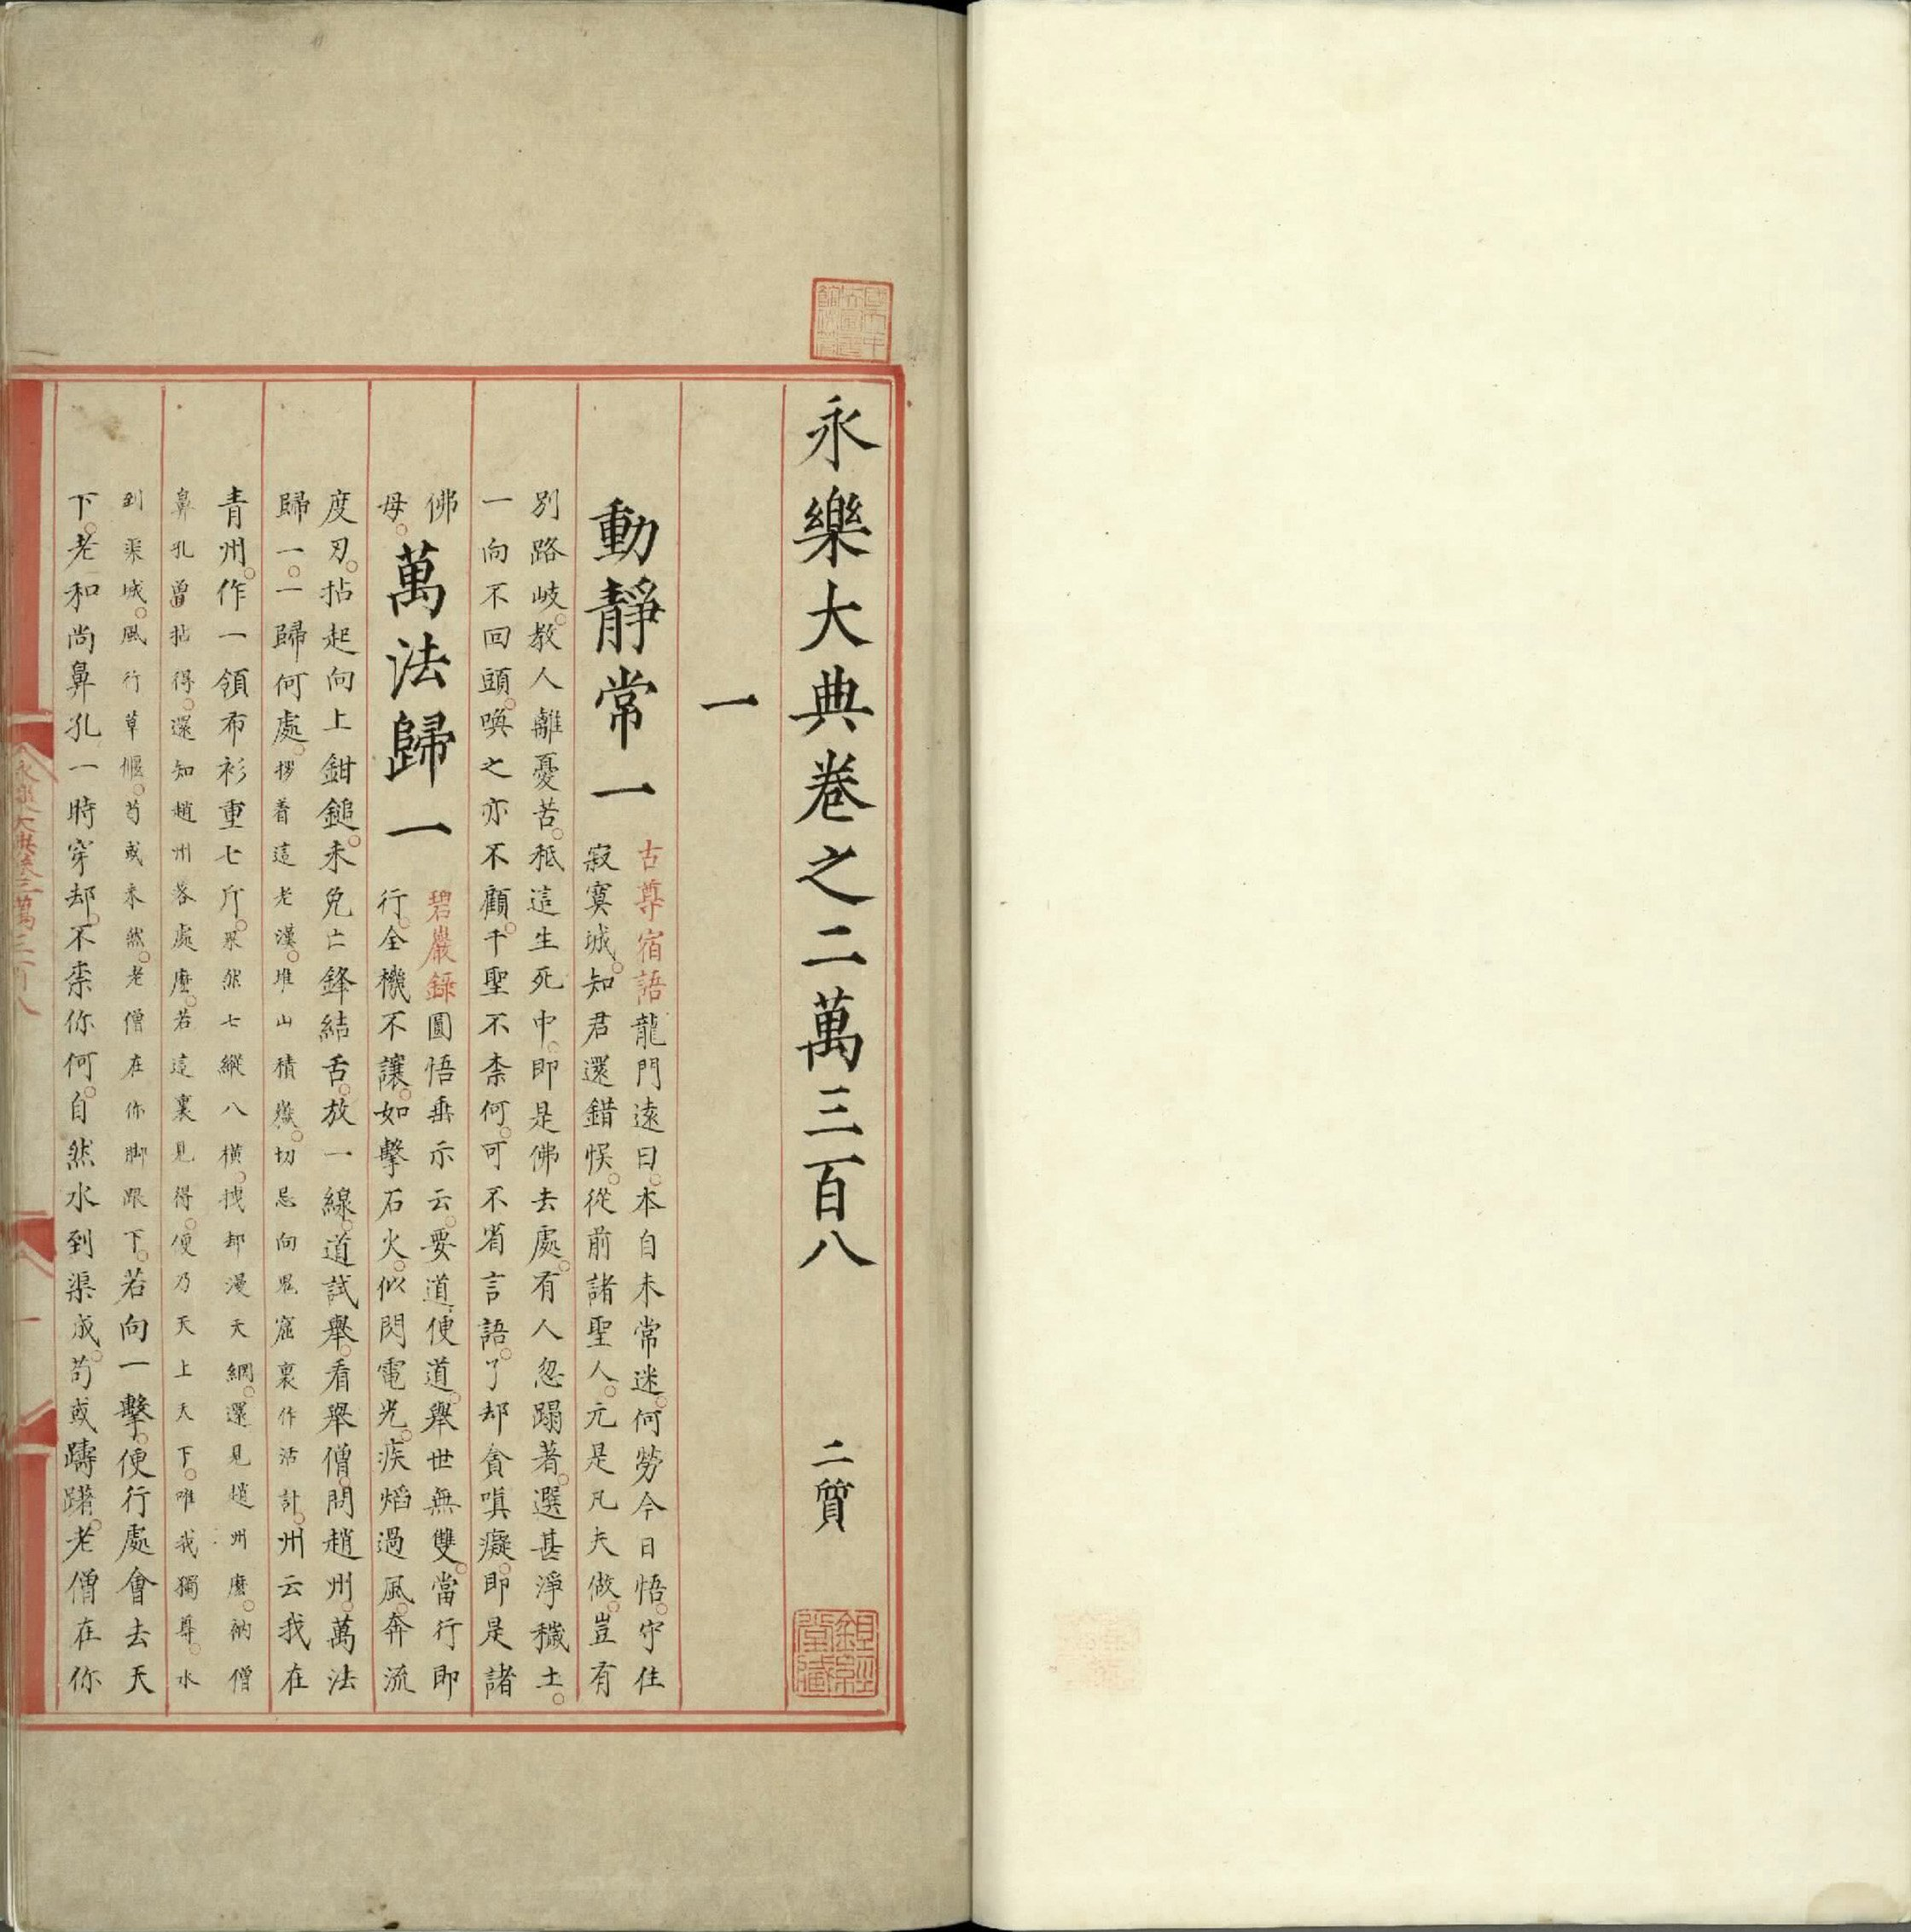 永樂大典卷之二萬三百八 二質
一
動靜常一
古尊宿語龍門遠曰本自未常迷何勞今日悟守住
寂寞城知君還錯悮從前諸聖人元是凡夫做豈有
別路岐教人離憂苦秪這生死中即是佛去處有人忽蹋著選甚淨穢土
一向不回頭喚之亦不顧千聖不柰何可不省言語了却貪嗔癡即是諸
佛
母
萬法歸一
碧巖錄圜悟垂示云要道便道舉世無雙當行即
行全機不讓如擊石火似閃電光疾熖過風奔流
度刃拈起向上鉗鎚未免亡鋒結舌放一線道試舉看舉僧問趙州萬法
歸一一歸何處拶着這老漢堆山積嶽切忌向鬼窟裏作活計州云我在
青州作一領布衫重七斤果然七縱八橫拽却漫天網還見趙州麽衲僧
鼻孔曾拈得還知趙州落處麽若這裏見得便乃天上天下唯我獨尊水
到渠成風行草偃苟或未然老僧在你脚跟下若向一擊便行處會去天
下老和尚鼻孔一時穿却不柰你何自然水到渠成苟或躊躇老僧在你
永樂大典卷二萬三百八
一